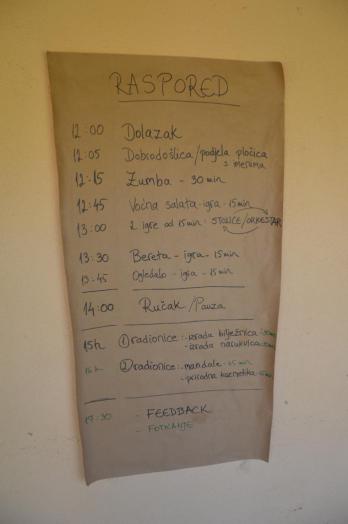 RASPORED
12:00 Dolazak
12:05 Dobrodošlica/podjela pločica
s imenima
12:15 Zumba - 30 min
12:45 Voćna salata - igra - 15 min
13:00 2 igre od 15 min - STOLICE/ORKESTAR
13:30 Bereta - igra - 15 min
13:45 Ogledalo - igra - 15 min
14:00 Ručak/Pauza
15h ① radionice: - izrada bilježnica
- izrada narukvica
16h ② radionice: - mandale - 45 min
- prirodna kozmetika
17:30 - FEEDBACK
- FOTKANJE